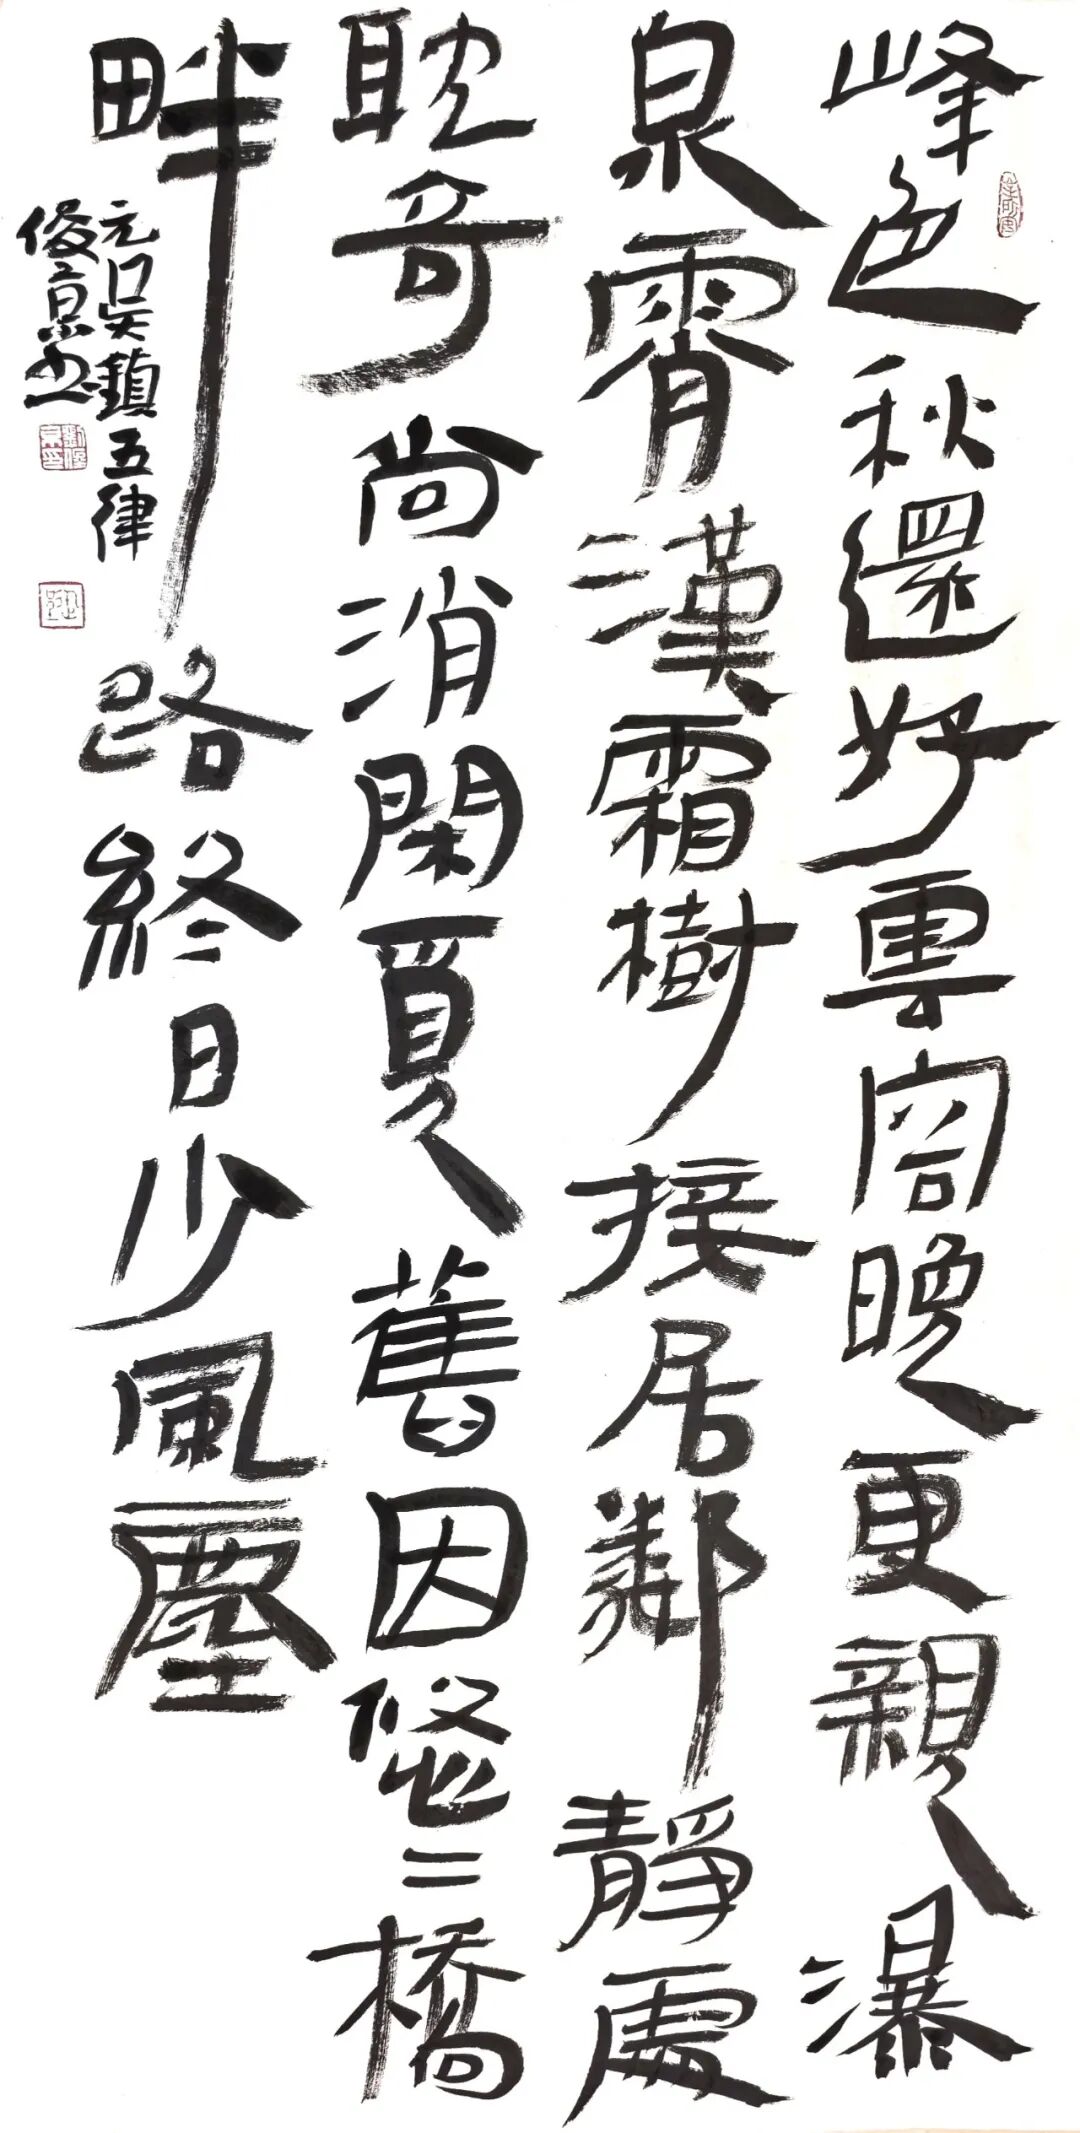 峰色秋還好雲容晚更親瀑
泉霄漢霜樹接居鄰靜處
耽奇尚消閑覓舊因悠〻橋
畔路終日少風塵
元吴鎮五律
俊京书
劉俊京印